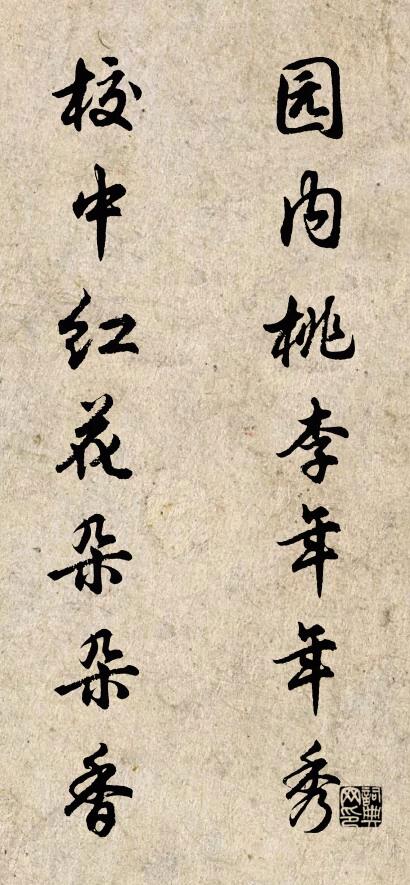 园内桃李年年秀
校中红花朵朵香
詞典网印